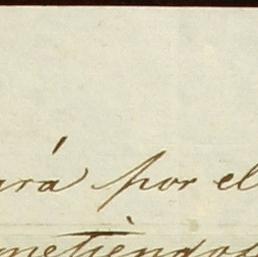 ará por el
metiéndos